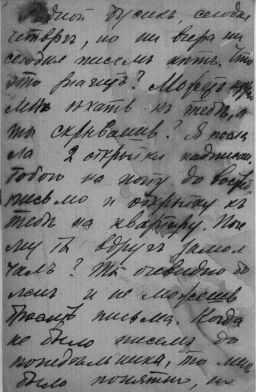 Родной Бусикъ, сегодня
четвергъ, но ни вчера ни
сегодня писемъ нѣтъ. Что
это значитъ? Можетъ нужно
мнѣ ѣхать къ тебѣ, а
ты скрываешь? Я посла
ла 2 открытки надписан.
тобою на почту до востр.
письмо и открытку къ
тебѣ на квартиру. Поче
му ты вдругъ замол
чалъ? Ты очевидно бо
ленъ и не можешь
бросить письма. Когда
не было писемъ до
понедѣльника, то мнѣ
было понятно, но